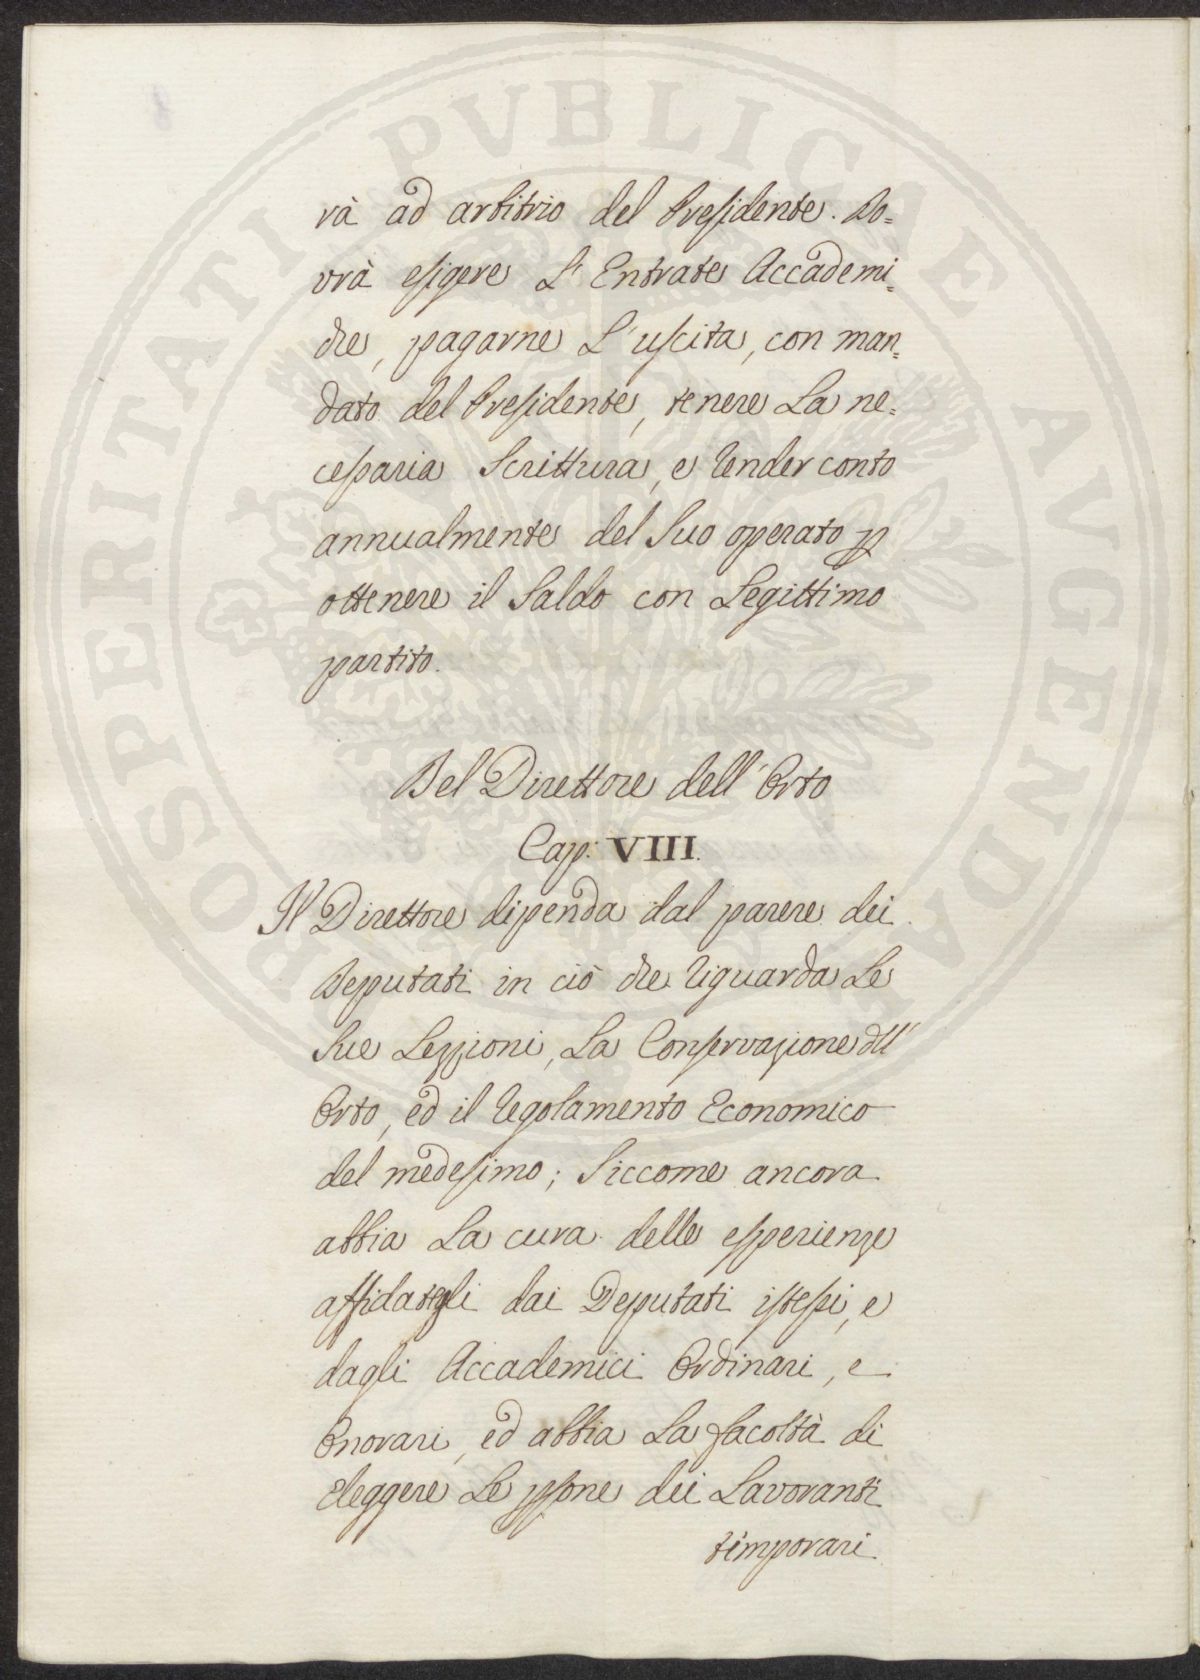 PROSPERITATI PVBLICAE AVGENDAE
rà ad arbitrio del Presidente. Do=
vrà esigere L'Entrate Accademi=
che, pagarne L'uscita, con man=
dato del Presidente, tenere La ne=
cessaria Scrittura, e render conto
annualmente del Suo operato p
ottenere il Saldo con Legittimo
partito.
Del Direttore dell'Orto
Cap: VIII.
Il Direttore dipenda dal parere dei
Deputati in ciò che riguarda Le
Sue Lezzioni, La Conservazione dll'
Orto, ed il regolamento Economico
del medesimo; Siccome ancora
abbia La cura delle esperienze
affidategli dai Deputati istessi, e
dagli Accademici Ordinari, e
Onorari, ed abbia La facoltà di
eleggere Le psone dei Lavoranti
timporari